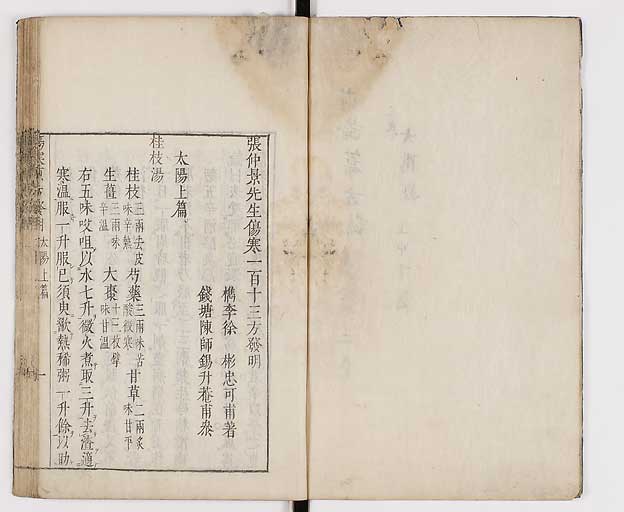 張仲景先生傷寒一百十三方發明
檇李徐　彬忠可甫著
錢塘陳師錫升菴甫參
太陽上篇
桂枝湯
桂枝三兩去皮味辛熱　芍藥三兩味苦酸微寒　甘草二兩炙味甘平
生薑三兩味辛溫　大棗十二枚擘味甘溫
右五味㕮咀以水七升微火煮取三升去渣適
寒溫服一升服已須臾歠熱稀粥一升餘以助
太陽上篇
一